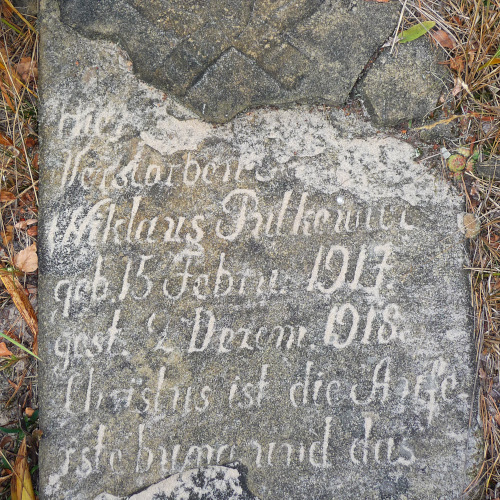 Hier
Verstorben
Niklaus Rutkewicz
geb. 15 Febru. 1917.
gest. 2 Dezem. 1918.
Christus ist die Aufe-
istehung und das